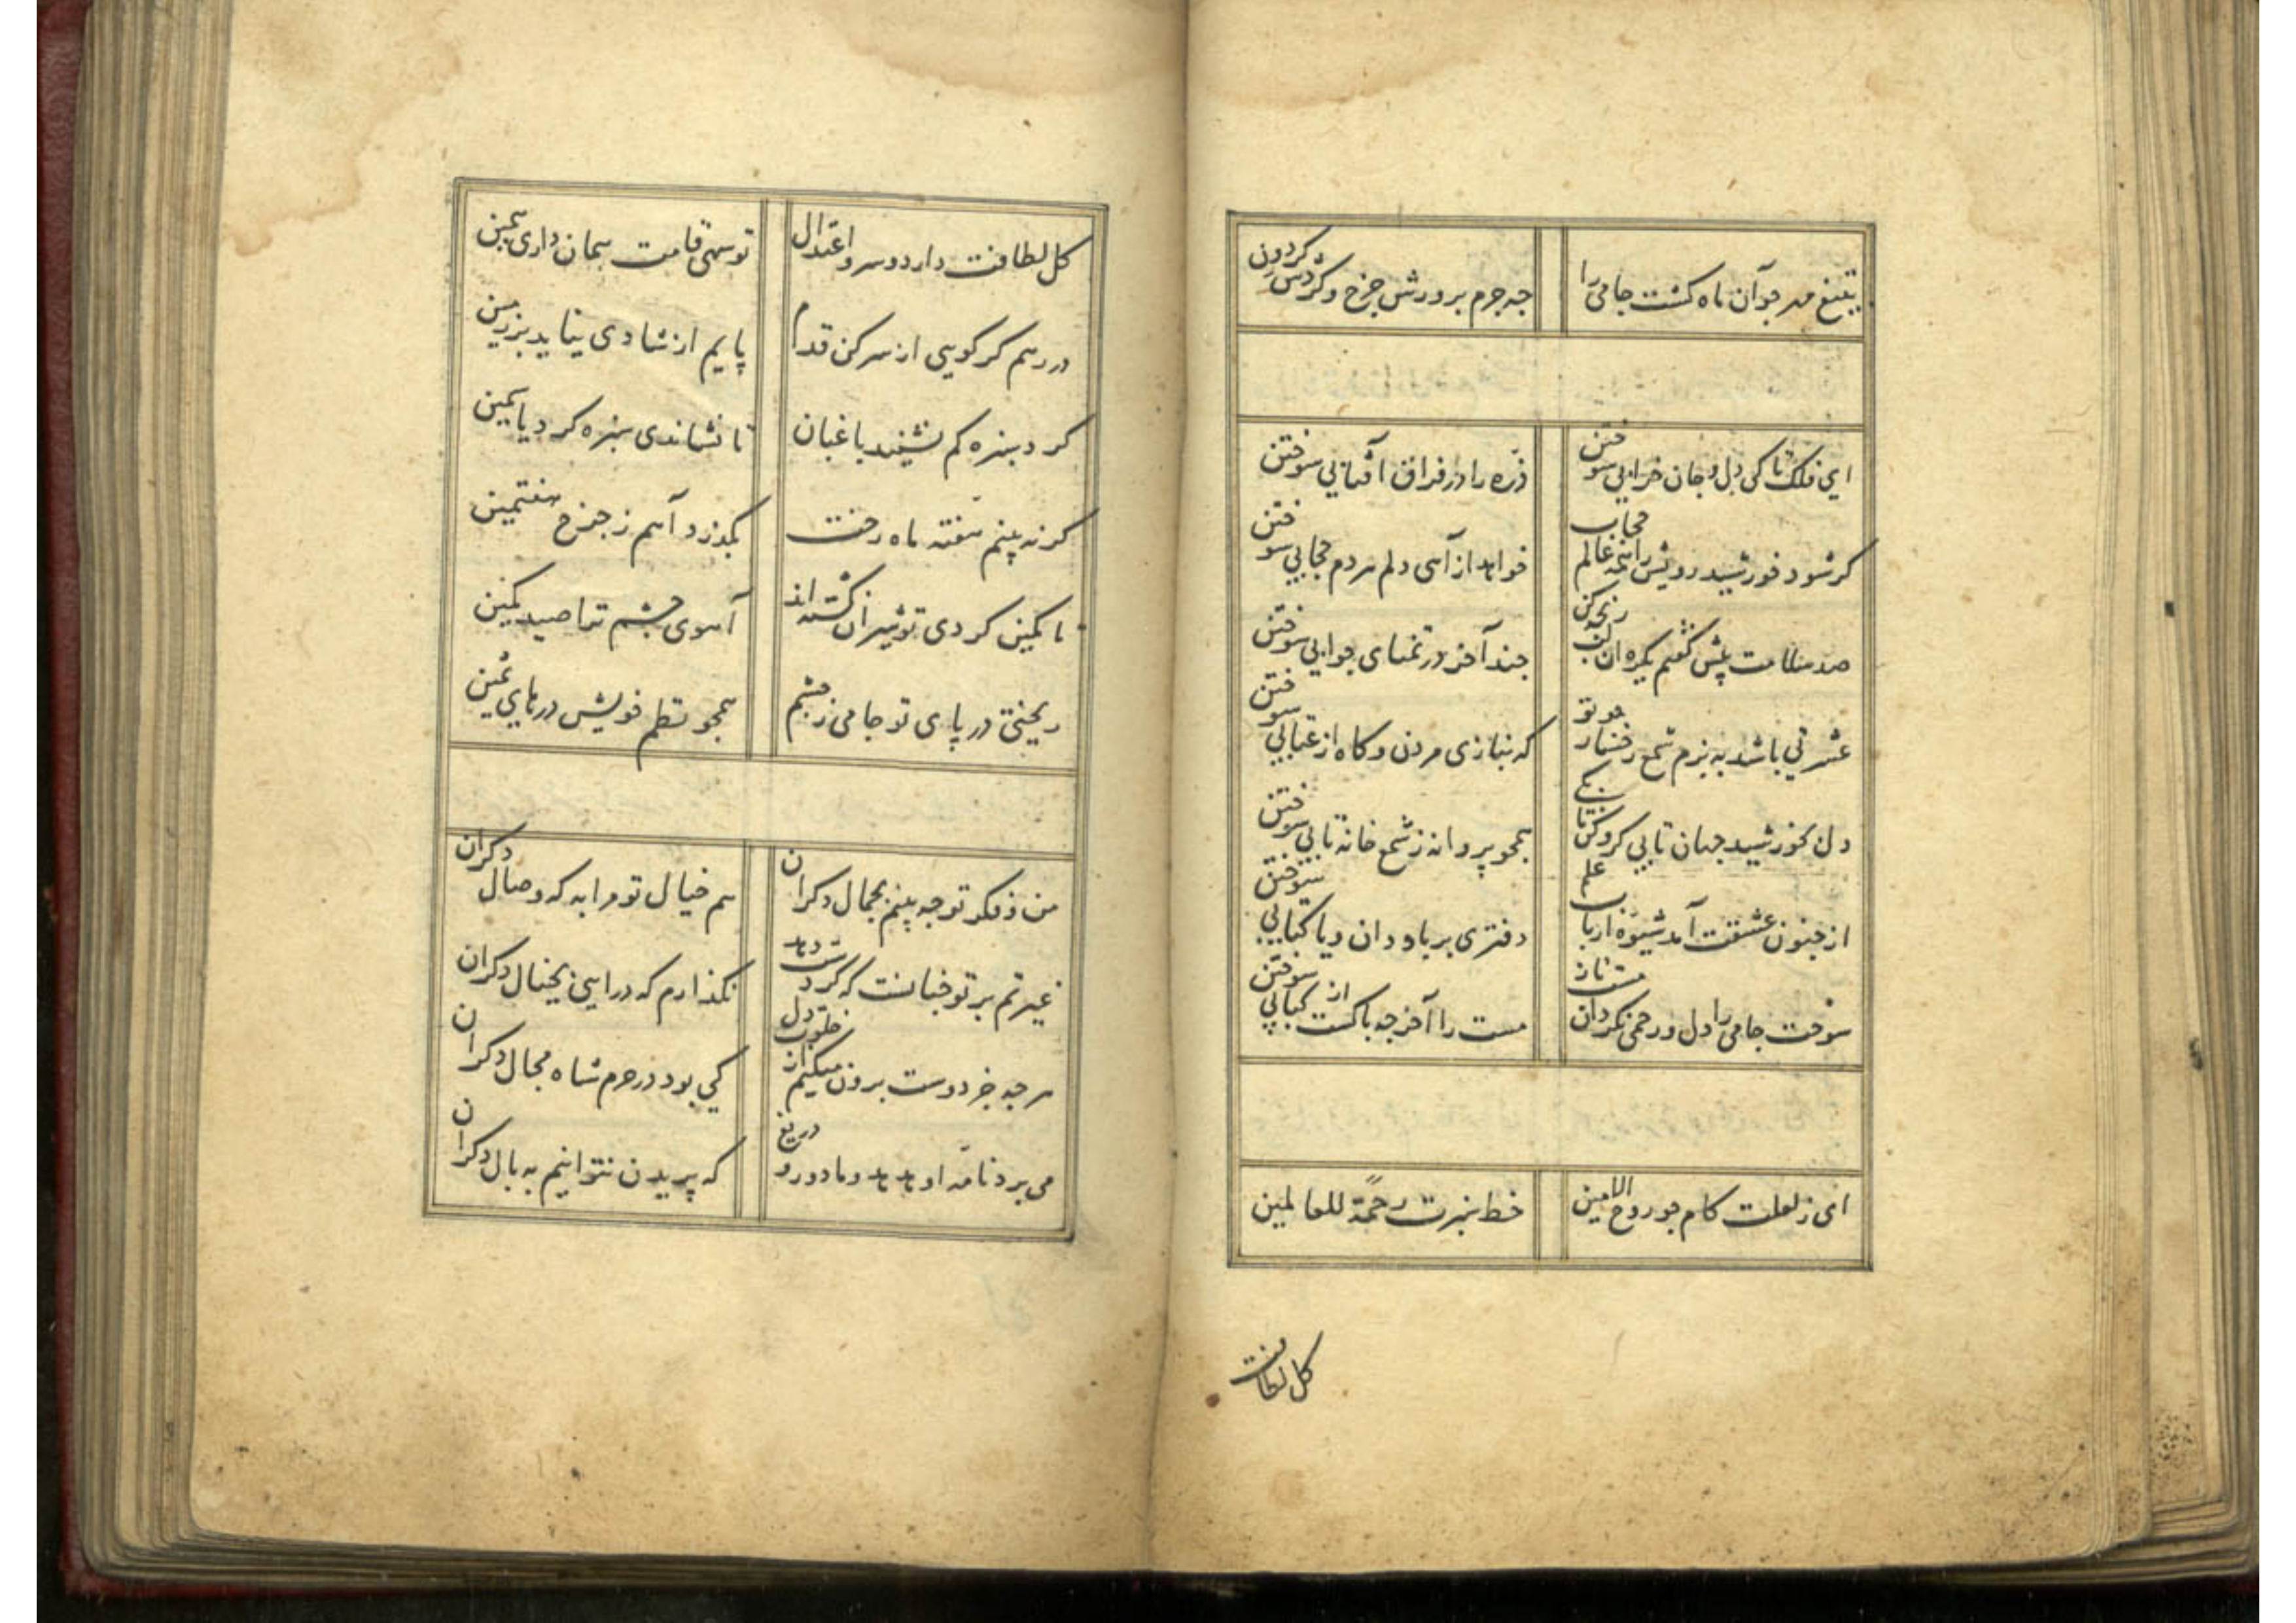 بتیغ مهر چو آن ماه کشت جامی را
چه جرم پرورش چرخ و گردش گردون
ای فلک تا کی دل و جان خرابی سوختن
ذره را در فراق آفتابی سوختن
کر شود خورشید رویش را همه عالم حجاب
خواهد از آهی دلم هر دم حجابی سوختن
صد سلامت پیش گفتم یکره آن لب رنجه کن
چند آخر در تمنای جوابی سوختن
عشرتی باشد به بزم شمع رخسار چو تو
که بنازی مردن و کاه از عتابی سوختن
دل بخورشید جهان تابی کرو کن تا بکی
همچو پروانه ز شمع خانه تابی سوختن
از جنون عشقت آمد شیوه ارباب علم
دفتری بر باد دادن یا کتابی سوختن
سوخت جامی را دل و رحمی نکرد آن مست ناز
مست را آخر چه باکست از کبابی سوختن
ای ز لعلت کام جو روح الامین
خط سبزت رحمة للعالمین
کل لطافت
کل لطافت دارد و سرو اعتدال
تو سهی قامت همان داری همین
در رهم کر کویی از سر کن قدم
پایم از شادی نیاید بر زمین
کرد سبزه کم نشیند باغبان
تا نشاندی سبزه کرد یاسمین
کر نه بینم هفته ماه رخت
بکذرد آهم ز چرخ هفتمین
تا کمین کردی تو شیران کشته اند
آهوی چشم ترا صید کمین
ریختی در پای تو جامی ز چشم
همچو نظم خویش درهای ثمین
من ز فکر تو چه بینم بجمال دکران
هم خیال تو مرا به که وصال دکران
غیرتم بر تو چنانست که کر دست دهد
نکذارم که درایی بخیال دکران
هر چه جز دوست برون میکنم از خلوت دل
کی بود در حرم شاه مجال دکران
می برد نامه او هدهد و ما دور دریغ
که پریدن نتوانیم به بال دکران